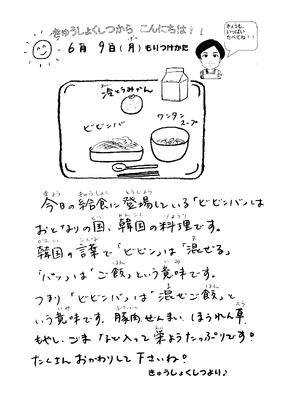 きゅうしょくしつから こんにちは!!
6月 9日(月)もりつけかた
きょうも、
いっぱい
たべてね!!
冷とうみかん
ビビンバ
ワンタン
スープ
今日の給食に登場している「ビビンバ」は
おとなりの国、韓国の料理です。
韓国の言葉で「ビビン」は「混ぜる」
「バッ」は「ご飯」という意味です。
つまり「ビビンバ」は「混ぜご飯」と
いう意味です。豚肉、ぜんまい、ほうれん草、
もやし、ごまなど入って栄ようたっぷりです!
たくさんおかわりして下さいね!
きゅうしょくしつより♪